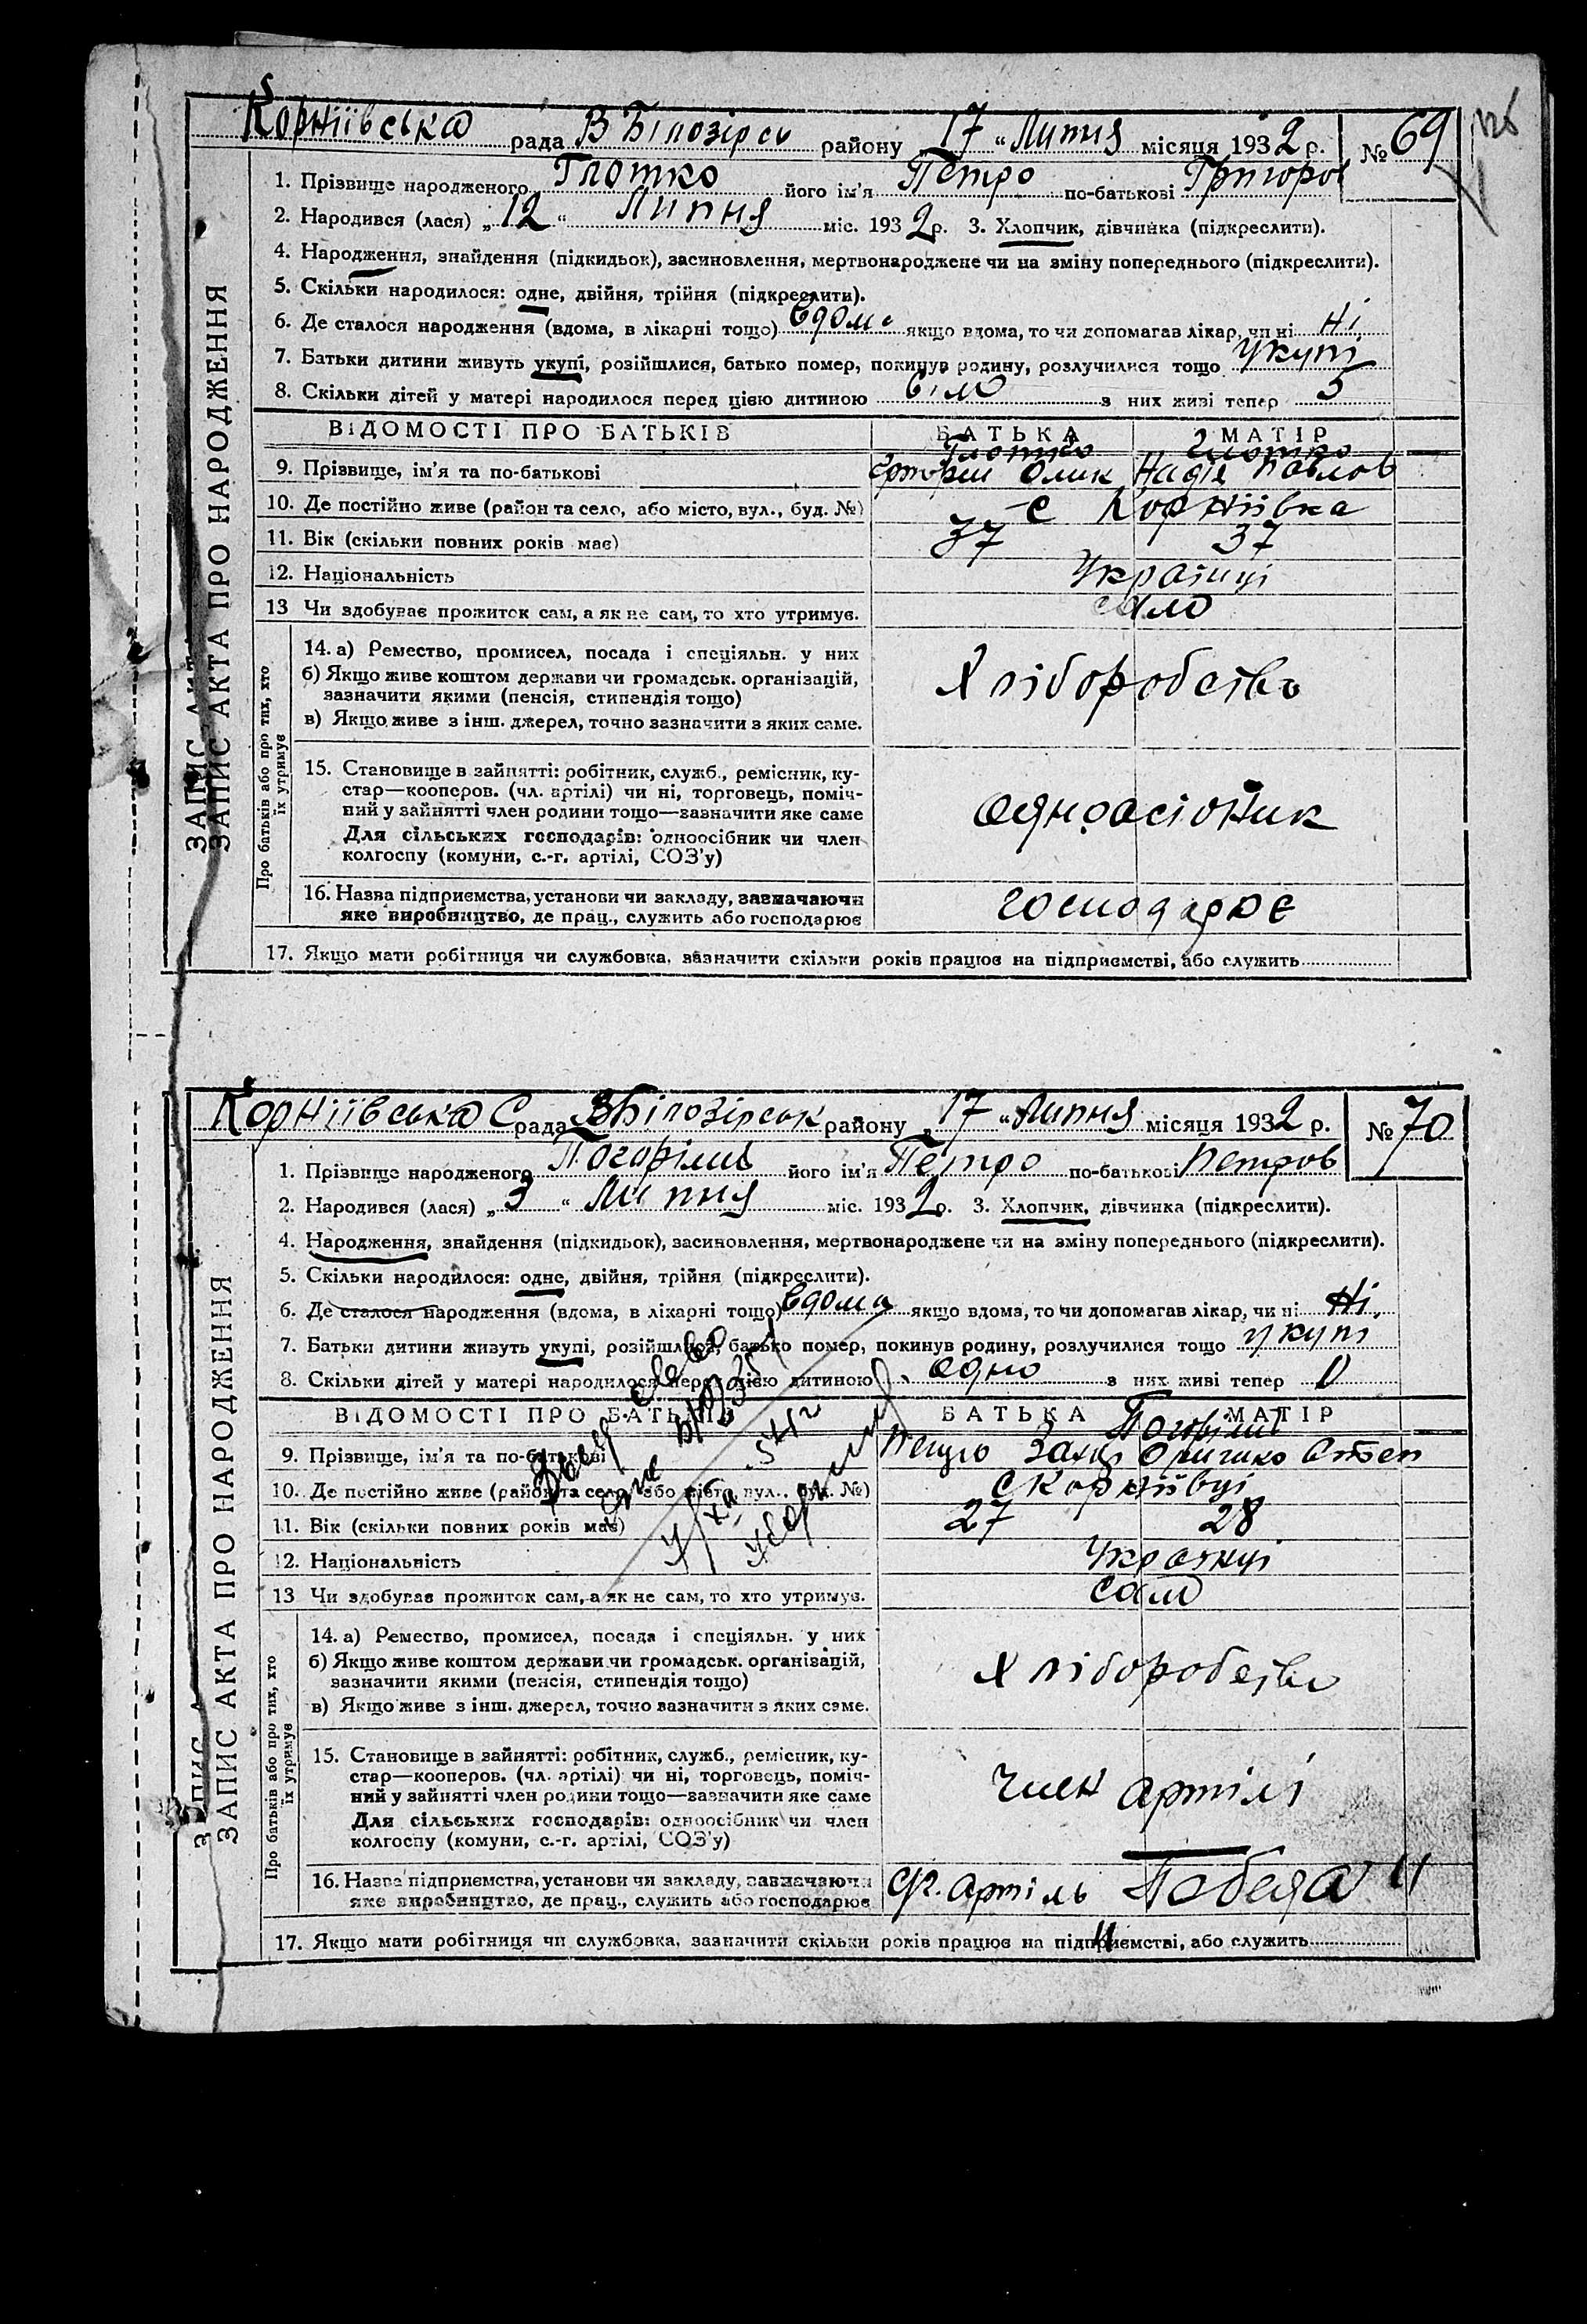 Корніївська рада В Білозірсь району „17“ Липня місяця 1932 р. № 69
1. Прізвище народженого Глотко його ім'я Петро по-батькові Григоров
2. Народився (лася) „12“ Липня міс. 1932 р. 3. Хлопчик, дівчинка (підкреслити).
4. Народження, знайдення (підкидьок), засиновлення, мертвонароджене чи на зміну попереднього (підкреслити).
5. Скільки народилося: одне, двійня, трійня (підкреслити).
6. Де сталося народження (вдома, в лікарні тощо) вдома якщо вдома, то чи допомагав лікар, чи ні Ні
7. Батьки дитини живуть укупі, розійшлися, батько помер, покинув родину, розлучилися тощо укупі
8. Скільки дітей у матері народилося перед цією дитиною з них живі тепер 5
ВІДОМОСТІ ПРО БАТЬКІВ БАТЬКА МАТІР
Глотко Глотко
9. Прізвище, ім'я та по-батькові Олик Надія Павлов
10. Де постійно живе (район та село, або місто, вул., буд. №) с Корніївка
11. Вік (скільки повних років має) 37 37
12. Національність Українці
13 Чи здобуває прожиток сам, а як не сам, то хто утримує. само
ЗАПИС АКТА ПРО НАРОДЖЕННЯ
Про батьків або про тих, хто
їх утримує
14. а) Ремество, промисел, посада і спеціяльн. у них
б) Якщо живе коштом держави чи громадськ. організацій,
зазначити якими (пенсія, стипендія тощо)
Хліборобств
в) Якщо живе з інш. джерел, точно зазначити з яких саме.
15. Становище в зайнятті: робітник, служб., ремісник, ку-
стар—кооперов. (чл. артілі) чи ні, торговець, поміч-
ний у зайнятті член родини тощо—зазначити яке саме
одноосібник
Для сільських господарів: одноосібник чи член
колгоспу (комуни, с.-г. артілі, СОЗ'у)
16. Назва підприємства, установи чи закладу, зазначаючи
яке виробництво, де прац., служить або господарює
господарює
17. Якщо мати робітниця чи службовка, зазначити скільки років працює на підприємстві, або служить
Корніївська С рада ВБілозірськ району „17“ Липня місяця 1932 р. № 70
1. Прізвище народженого Погорілий його ім'я Петро по-батькові Петров
2. Народився (лася) „3“ Липня міс. 1932 р. 3. Хлопчик, дівчинка (підкреслити).
4. Народження, знайдення (підкидьок), засиновлення, мертвонароджене чи на зміну попереднього (підкреслити).
5. Скільки народилося: одне, двійня, трійня (підкреслити).
6. Де сталося народження (вдома, в лікарні тощо) вдома якщо вдома, то чи допомагав лікар, чи ні Ні
7. Батьки дитини живуть укупі, розійшлися, батько помер, покинув родину, розлучилися тощо укупі
8. Скільки дітей у матері народилося перед цією дитиною одно з них живі тепер 0
ВІДОМОСТІ ПРО БАТЬКІВ БАТЬКА МАТІР
9. Прізвище, ім'я та по-батькові Петро
10. Де постійно живе (район та село, або місто, вул., буд. №) с Корніївці
11. Вік (скільки повних років має) 27 28
12. Національність Українці
13 Чи здобуває прожиток сам, а як не сам, то хто утримує. само
ЗАПИС АКТА ПРО НАРОДЖЕННЯ
Про батьків або про тих, хто
їх утримує
14. а) Ремество, промисел, посада і спеціяльн. у них
б) Якщо живе коштом держави чи громадськ. організацій,
зазначити якими (пенсія, стипендія тощо)
Хліборобств
в) Якщо живе з інш. джерел, точно зазначити з яких саме.
15. Становище в зайнятті: робітник, служб., ремісник, ку-
стар—кооперов. (чл. артілі) чи ні, торговець, поміч-
ний у зайнятті член родини тощо—зазначити яке саме
член артілі
Для сільських господарів: одноосібник чи член
колгоспу (комуни, с.-г. артілі, СОЗ'у)
16. Назва підприємства, установи чи закладу, зазначаючи
яке виробництво, де прац., служить або господарює
артіль „Победа“
17. Якщо мати робітниця чи службовка, зазначити скільки років працює на підприємстві, або служить